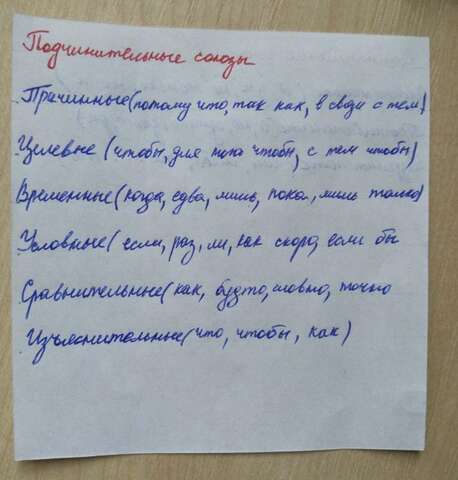 Подчинительные союзы
Причинные (потому что, так как, в связи с тем)
Целевые (чтобы, для того чтобы, с тем чтобы)
Временные (когда, едва, лишь, пока, лишь только)
Условные (если, раз, ли, как скоро, если бы
Сравнительные (как, будто, словно, точно
Изъяснительные (что, чтобы, как)